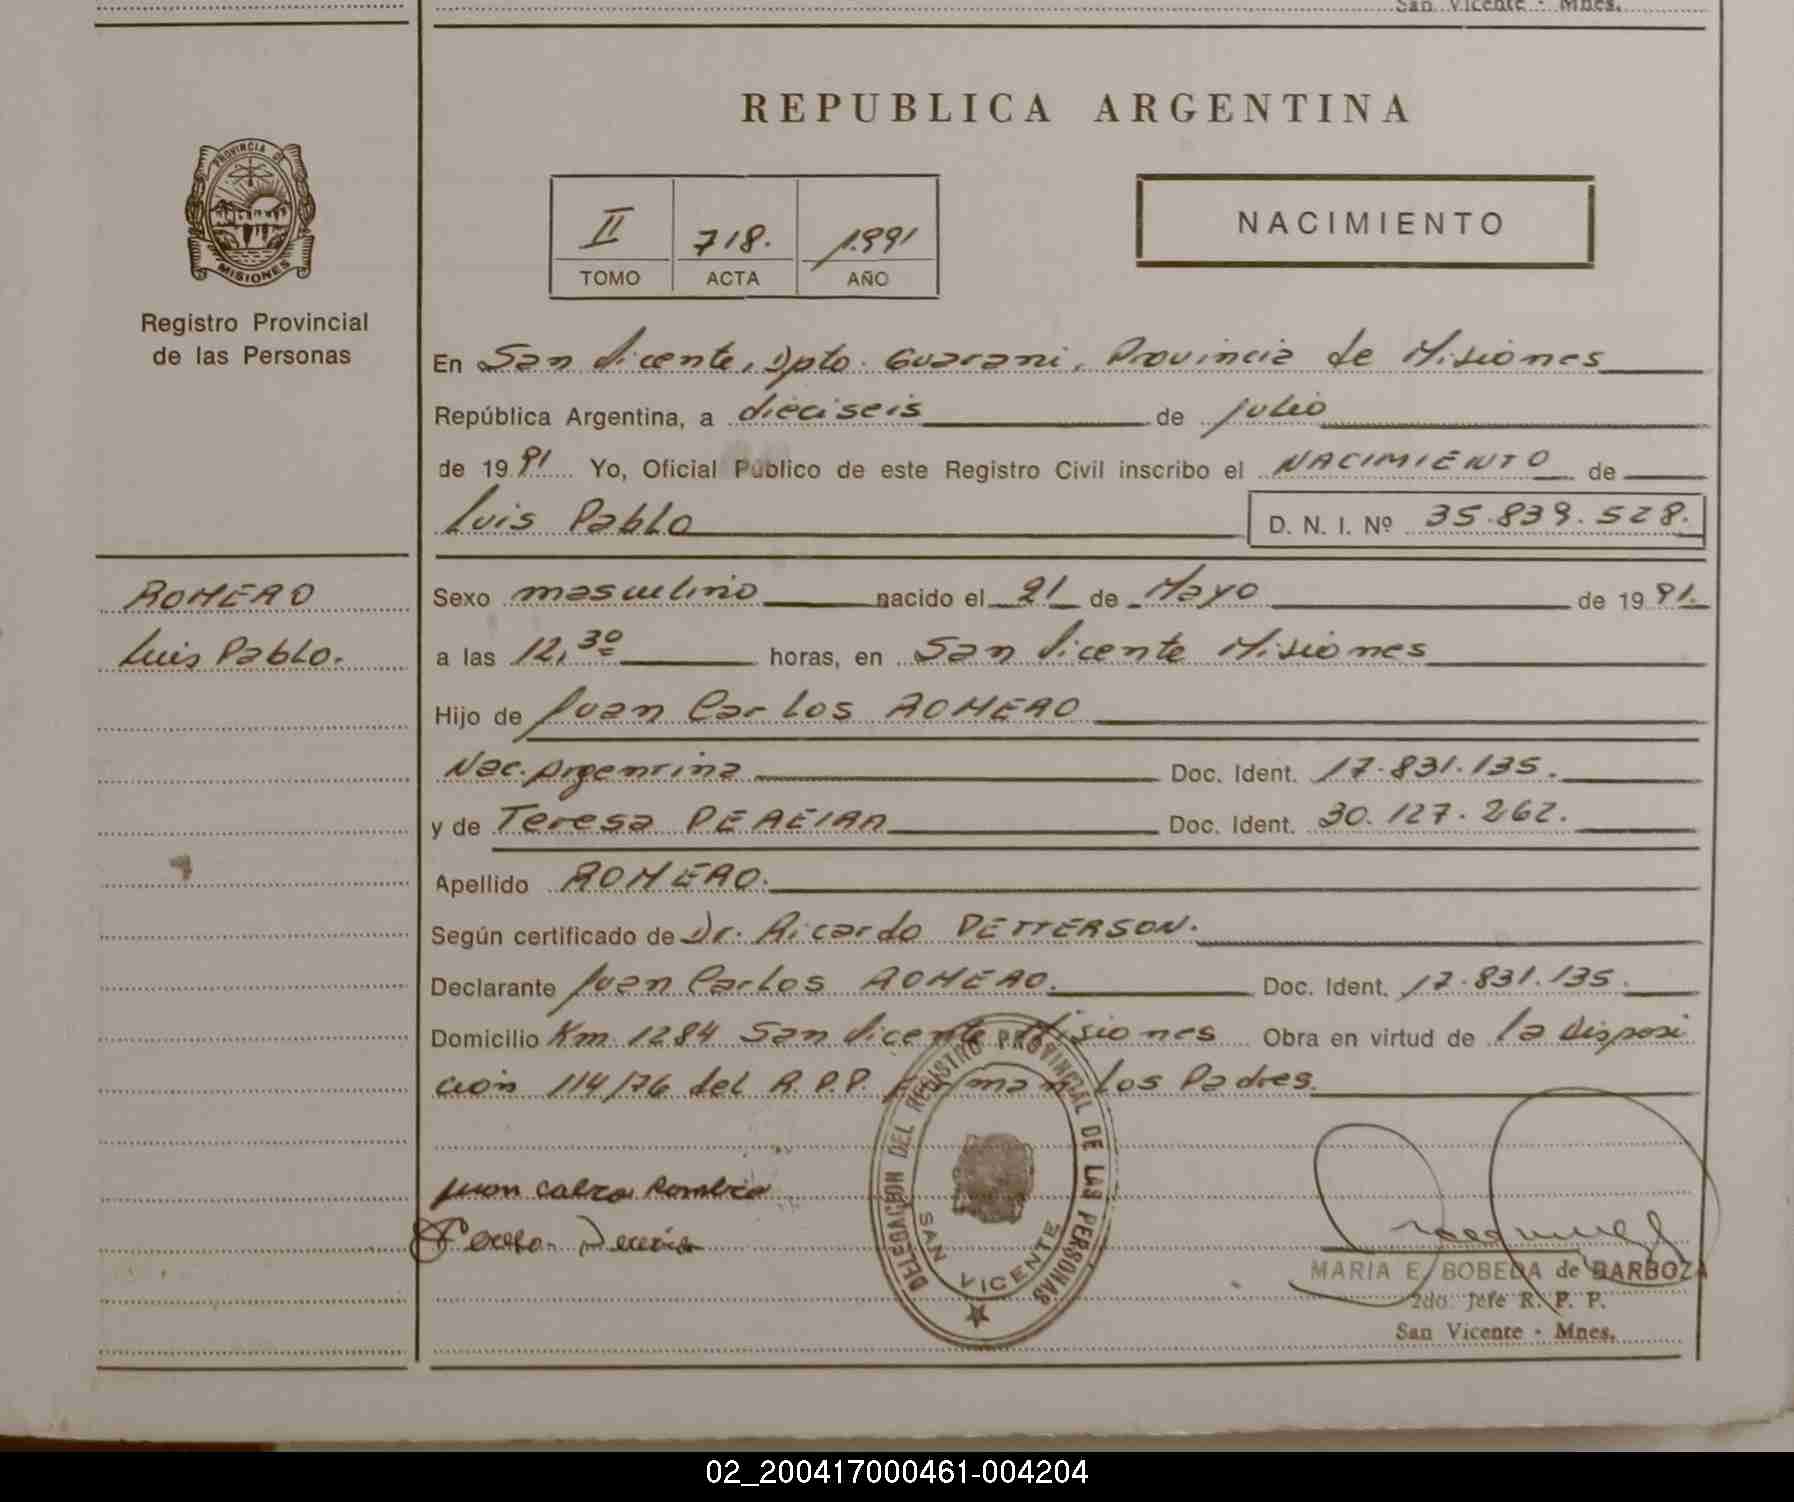 San Vicente - Mnes.
REPUBLICA ARGENTINA
PROVINCIA DE
MISIONES
Registro Provincial
de las Personas
II 718. 1.991
TOMO ACTA AÑO
NACIMIENTO
En San Vicente, Dpto. Guarani, Provincia de Misiones
República Argentina, a dieciseis de julio
de 19 91 Yo, Oficial Público de este Registro Civil inscribo el NACIMIENTO de
Luis Pablo D. N. I. Nº 35.839.528.
ROMERO
Luis Pablo.
Sexo masculino nacido el 21 de Mayo de 19 91.
a las 12,30 horas, en San Vicente Misiones
Hijo de Juan Carlos ROMERO
Nac. Argentina Doc. Ident. 17.831.135.
y de Teresa PEREIRA Doc. Ident. 30.127.262.
Apellido ROMERO.
Según certificado de Dr. Ricardo PETTERSON.
Declarante Juan Carlos ROMERO. Doc. Ident. 17.831.135.
Domicilio Km. 1284 San Vicente Misiones Obra en virtud de la Disposi
ción 114/76 del R.P.P. Firman los Padres.
DELEGACION DEL REGISTRO PROVINCIAL DE LAS PERSONAS
SAN VICENTE
Juan
MARIA E. BOBEDA de BARBOZA
2do. Jefe R. P. P.
San Vicente - Mnes.
02_200417000461-004204